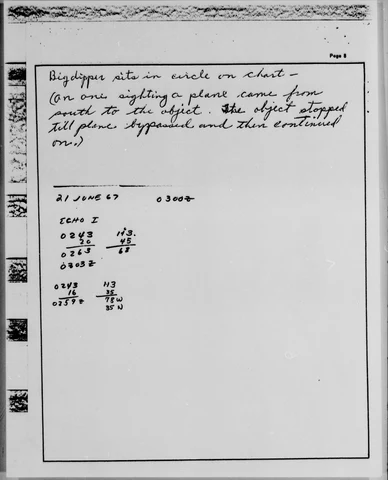 Page 8
Big dipper sits in circle on chart –
(on one sighting a plane came from
south to the object. The object stopped
till plane bypassed and then continued
on.)
21 JUNE 67 0300Z
ECHO I
0243 113
20 45
0263 68
0303Z
0243 113
16 35
0259Z 78W
35N